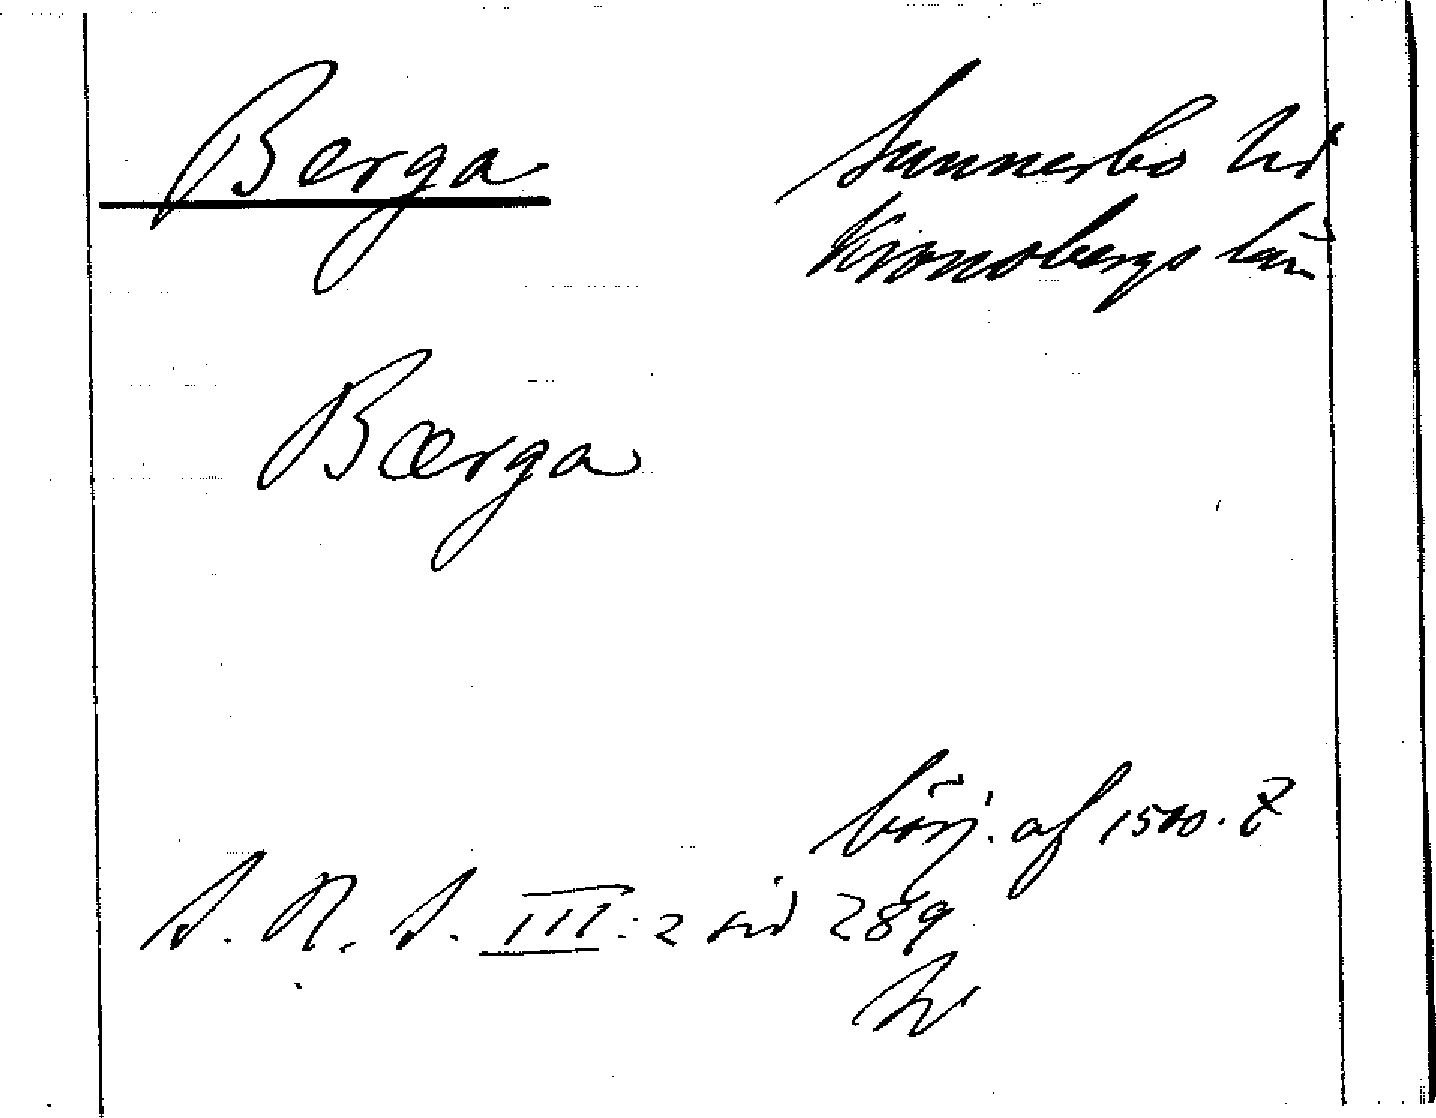 Berga
Sunnerbo hd
Kronobergs län
Bærga
börj. af 1500. t
S. R. S. III: 2 sid 289